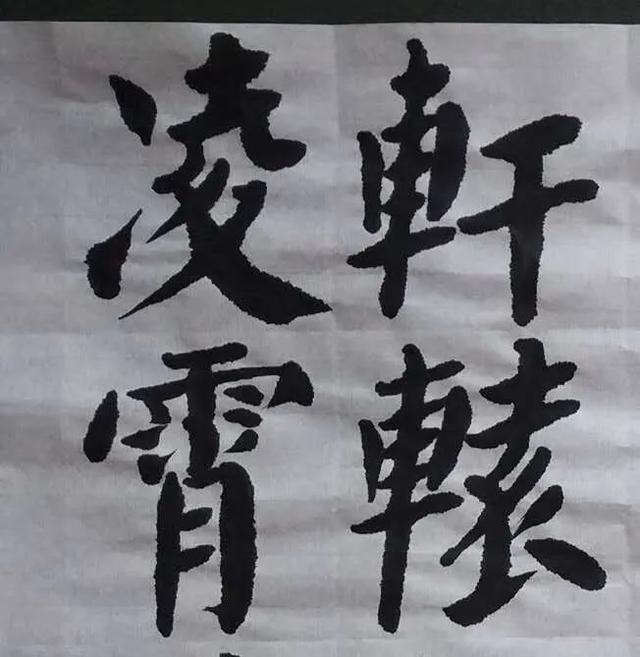 軒轅
凌霄